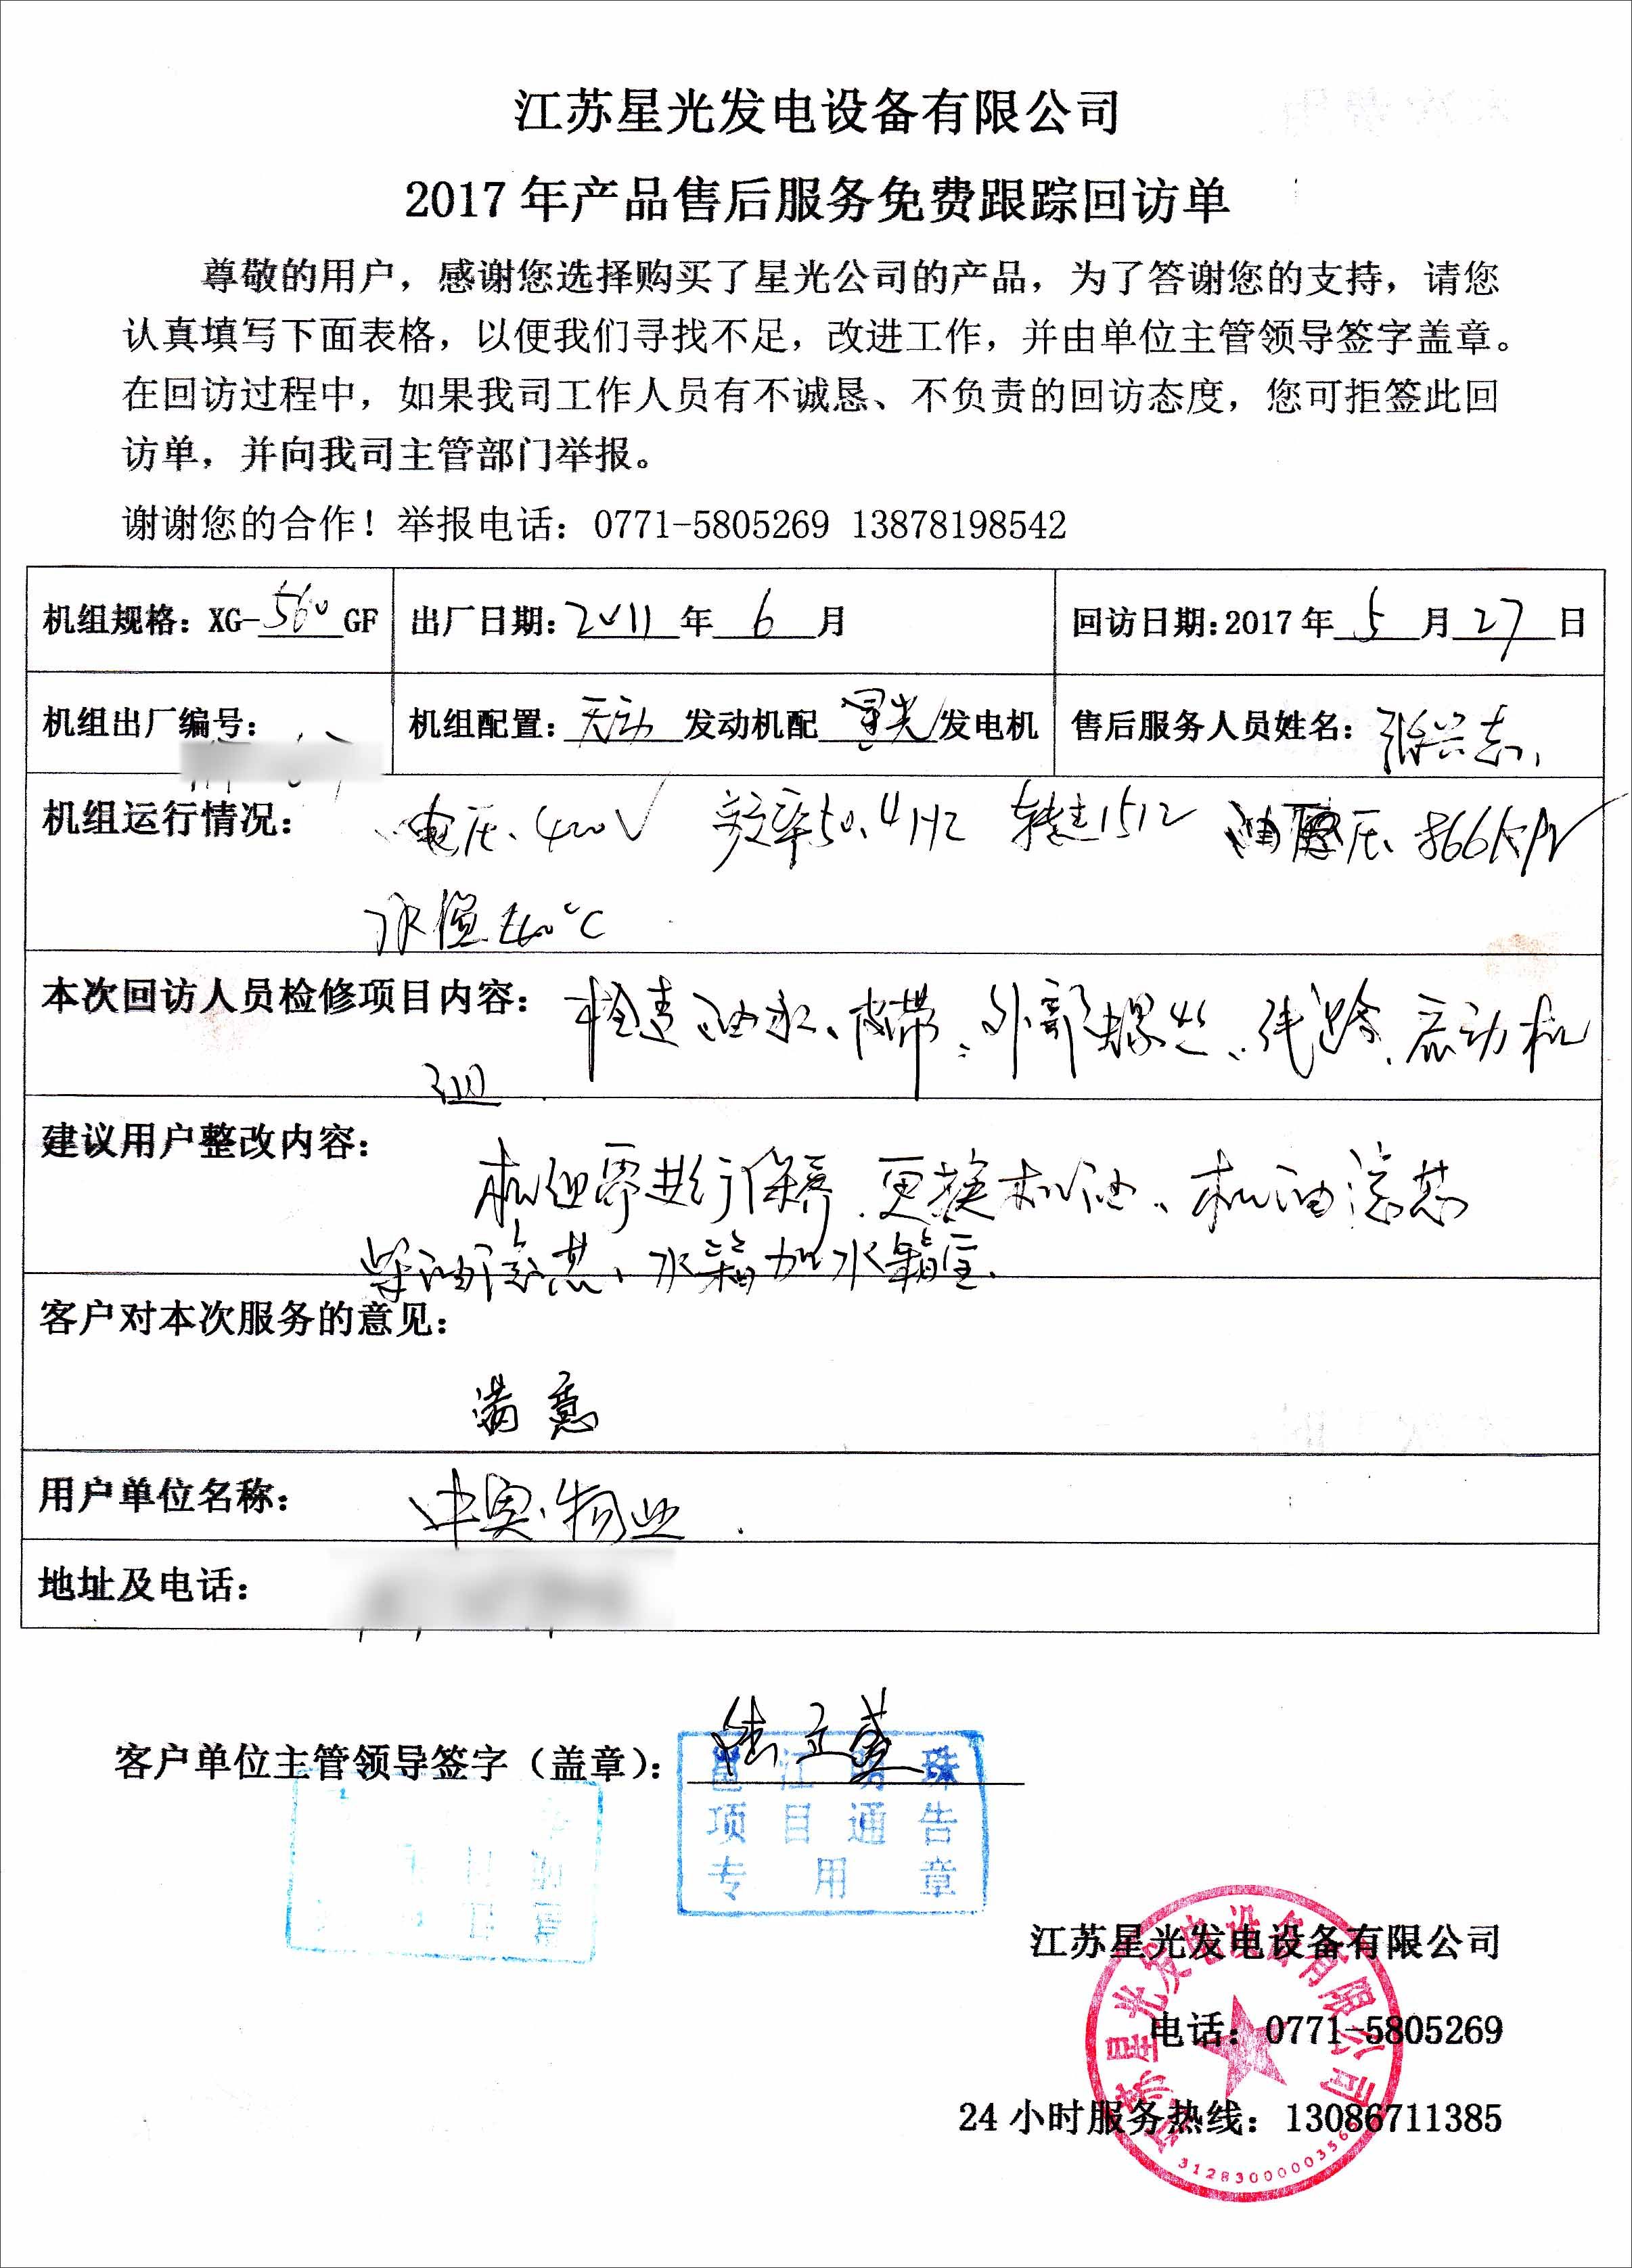 江苏星光发电设备有限公司
2017年产品售后服务免费跟踪回访单
尊敬的用户，感谢您选择购买了星光公司的产品，为了答谢您的支持，请您
认真填写下面表格，以便我们寻找不足，改进工作，并由单位主管领导签字盖章。
在回访过程中，如果我司工作人员有不诚恳、不负责的回访态度，您可拒签此回
访单，并向我司主管部门举报。
谢谢您的合作！举报电话：0771-5805269 13878198542
机组规格：XG-560GF 出厂日期：2011年6月 回访日期：2017年5月27日
机组出厂编号： 机组配置：天动发动机配星光发电机 售后服务人员姓名：张兴志
机组运行情况： 电压、400V 频率50.4HZ 转速1512 油压、366KPa
水温 60℃
本次回访人员检修项目内容：检查油水、皮带、外部螺丝、线路、启动机
组
建议用户整改内容：
机组需进行保养、更换机油、机油滤芯
柴油滤芯、水箱加水箱宝、
客户对本次服务的意见：
满意
用户单位名称： 中奥物业
地址及电话：
客户单位主管领导签字（盖章）：
邕江明珠
项目通告
专用章
江苏星光发电设备有限公司
电话：0771-5805269
24小时服务热线：13086711385
江苏星光发电设备有限公司